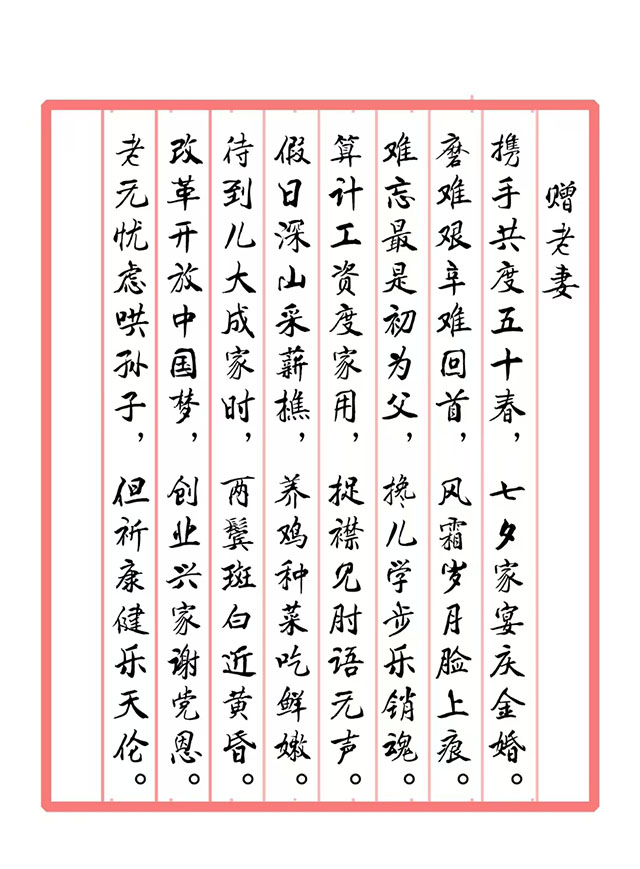 赠老妻
携手共度五十春，七夕家宴庆金婚。
磨难艰辛难回首，风霜岁月脸上痕。
难忘最是初为父，搀儿学步乐销魂。
算计工资度家用，捉襟见肘语无声。
假日深山采薪樵，养鸡种菜吃鲜嫩。
待到儿大成家时，两鬓斑白近黄昏。
改革开放中国梦，创业兴家谢党恩。
老无忧虑哄孙子，但祈康健乐天伦。